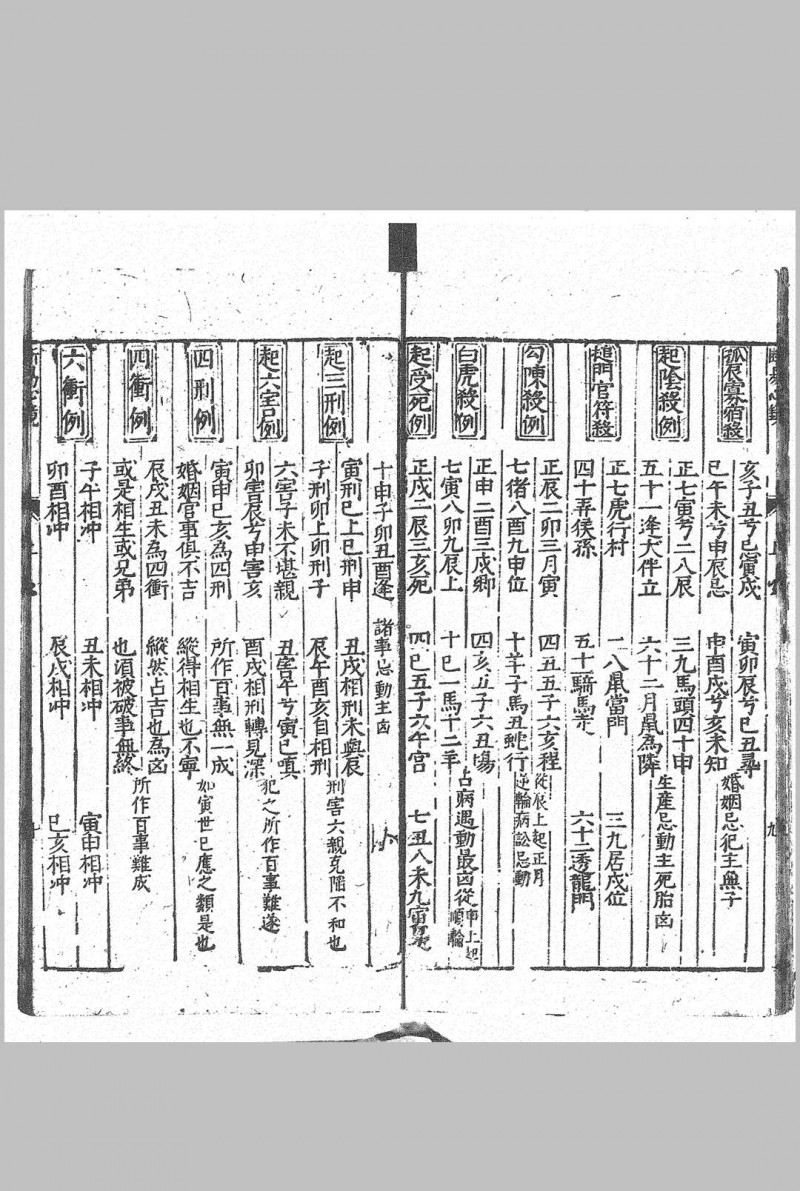 孤辰寡宿殺
亥子丑兮忌寅戌　寅卯辰兮巳丑尋　婚姻忌犯主無子
巳午未兮申辰忌　申酉戌兮亥未知
起陰殺例
正七寅兮二八辰　三九馬頭四十申　生産忌動主死胎凶
五十一逢犬伴立　六十二月鼠為隣
門官符殺
正七虎行村　二八鼠當門　三九居戌位
四十弄猴孫　五十騎馬走　六十二透龍門
勾陳殺例
正辰二卯三月寅　四丑五子六亥程　從辰上起正月
七猪八酉九申位　十羊子馬丑蛇行　逆輪病訟忌動
白虎殺例
正申二酉三戌鄉　四亥五子六丑場
七寅八卯九辰上　十巳一馬十二羊　占病遇動最凶從申上起順輪
起受死例
正戌二辰三亥死　四巳五子六午宮　七丑八未九寅
十申子卯丑酉逢　諸事忌動主凶
起三刑例
寅刑巳上巳刑申　丑戌相刑未與辰　刑害六親克陷不和也
子刑卯上卯刑子　辰午酉亥自相刑
起六害例
六害子未不堪親　丑害午兮寅巳嗔　犯之所作百事難遂
卯害辰兮申害亥　酉戌相刑轉見深
四刑例
寅申巳亥為四刑　所作百事無一成　如寅世巳應之類是也
婚姻官事俱不吉　縱得相生也不寧
四衝例
辰戌丑未為四衝　縱然占吉也為凶　所作百事難成
或是相生或兄弟　也須被破事無終
六衝例
子午相冲　丑未相冲　寅申相冲
卯酉相冲　辰戌相冲　巳亥相冲
九